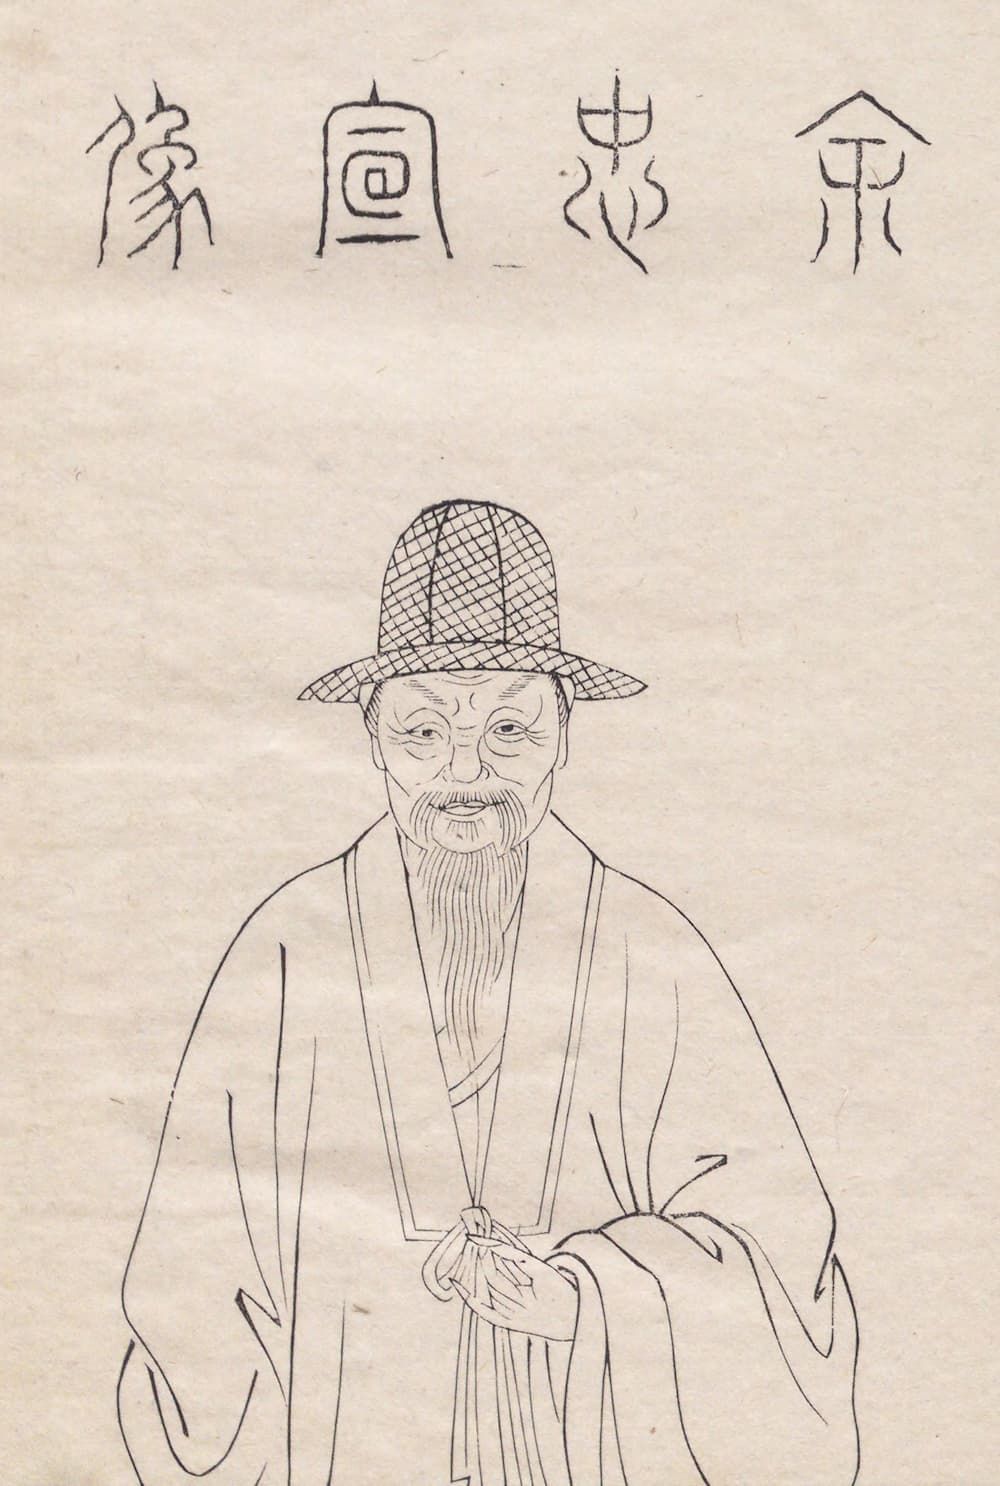 余忠宣像